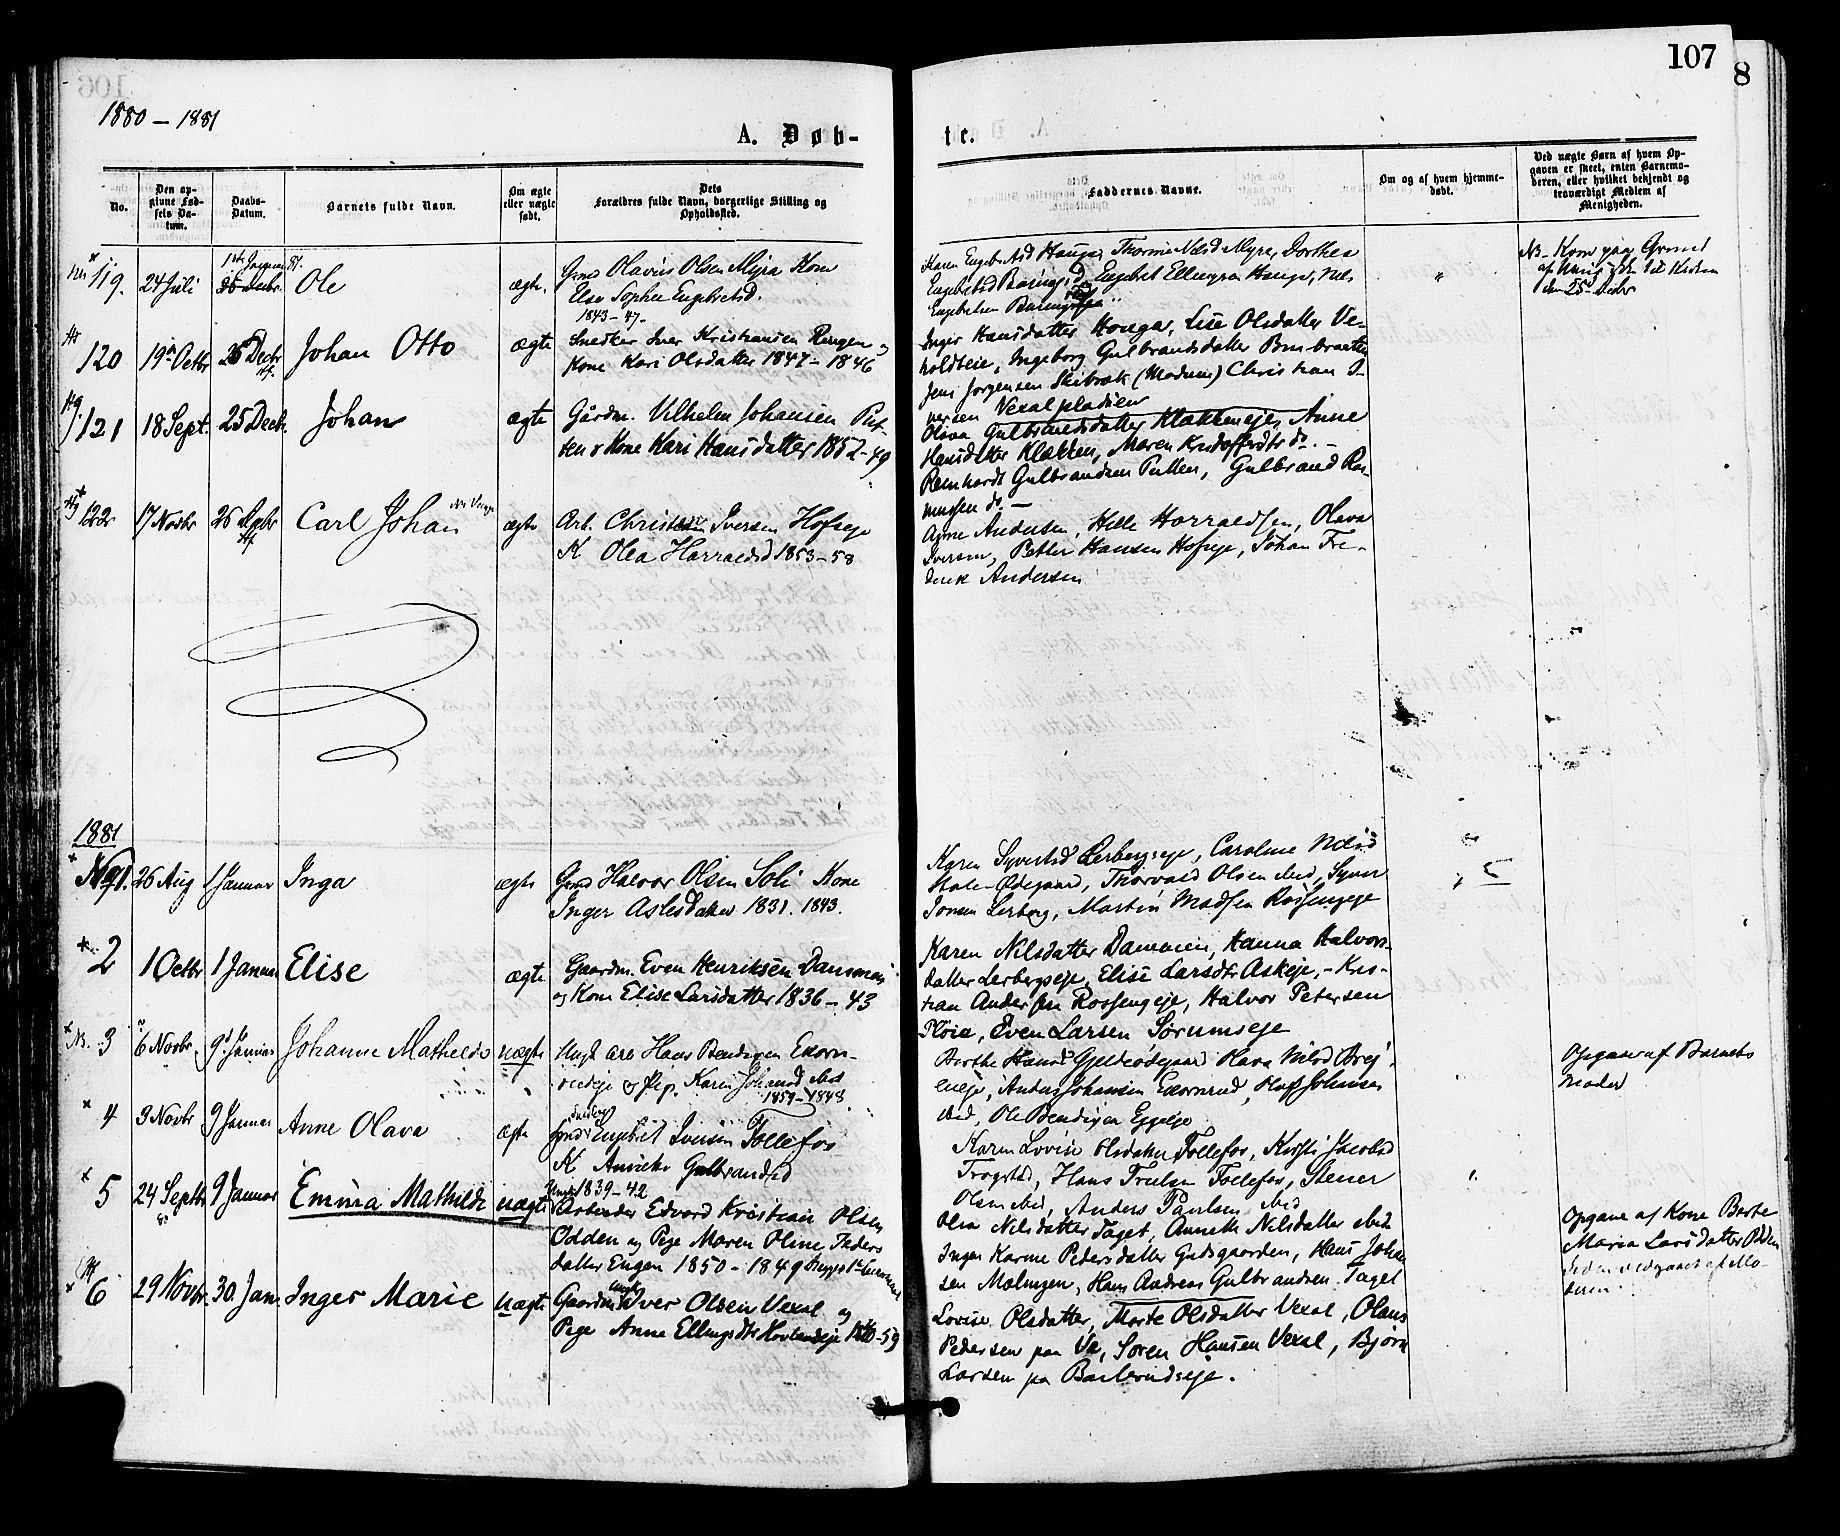 107
8
1880 - 1881
A. Døb-
te.
No.
Den op-
givne Fød-
sels Da-
tum.
Daabs-
Datum.
Barnets fulde Navn.
Om ægte
eller uægte
født.
Dets
Forældres fulde Navn, borgerlige Stilling og
Opholdssted.
Faddernes Navne.
Om og af hvem hjemme-
døbt.
Ved uægte Børn af hvem Op-
gaven er skeet, enten Barnemo-
deren, eller hvilket bekjendt og
troværdigt Medlem af
Menigheden.
119. 24 Juli Ole ægte. Olavus Olsen Myra Kone
Else Sophie Engebretsd.
1843 - 47
Karen Engebrtsd Hauga, Thorine Nilsd Myra, Dorthea
Engebret Ellingsen Hauga, Nils
120 19de Octbr 26 Decbr Johan Otto ægte Snedker Iver Kristiansen Ringen og
Kone Kari Olsdatter 1847 - 1846
Inger Hansdatter Honga, Lise Olsdatter Ve-
holdteie, Ingeborg Gulbrandsdatter Brubraaten
Jens Jørgensen Skibræk (Modum) Christian I-
versen Vexalpladsen
121 18 Sept. 25 Decbr. Johan ægte Gårdm. Vilhelm Johansen Put-
ten & Kone Kari Hansdatter 1852-49
Oliva Gulbrandsdatter Klækkeneje, Anne
Hansdatter Klækken, Maren Kristoffersdtr do. -
Reinhardt Gulbrandsen Putten, Gulbrand Ras-
mussen do. -
122 17 Novbr 26 Decbr Carl Johan ægte Arb. Christian Iversen Hofseje
K Olea Harraldsd 1853-58
Anne Andersen, Helle Harraldsen, Olava
Iversen, Petter Hansen Hofseje, Johan Fre-
derik Andersen
1881
No 1. 26 Aug 1 Januar Inga ægte Halvor Olsen Soli Kone
Inger Aslesdatter 1831. 1843.
Karen Syverstsd Lerbergseje, Caroline Nilsd
Ødegaard, Thorvald Olsen ibid, Syver
Jonsen Lerberg, Martin Madsen Rossengeje
2 1 Octbr 1 Januar Elise ægte Gaardm. Even Henriksen Dammen
og Kone Elise Larsdatter 1836 - 43
Karen Nilsdatter Dammen, Hanna Halvors-
datter Lerbergseje, Elise Larsdtr Askeje, - Kris-
tian Andersen Rossengeje, Halvor Petersen
Pløie, Even Larsen Sørumseje
3 6 Novbr 9 Januar Johanne Mathilde uægte Ungk Arb Hans Bendixen
og Pige Karen Johansd ibid
1859-1848
Berthe Hansd Gjeldeødegaard Olava Nilsd
Anders Johansen Ekornrud, Olaf Johansen
ibid, Ole Bendixen Eggeje
Opgave af Barnets
Moder
4 3 Novbr 9 Januar Anne Olava ægte Engebret Iversen Follefos
K Anneke Gulbrandsd
1839-42
Karen Lovise Olsdatter Follefos, Kirsti Jacobsd
Trogstad, Hans Truelsen Follefos, Stener
Olsen ibid, Anders Paulsen ibid
5 24 Septbr 9 Januar Emma Mathilde uægte Arbeider Edvard Kristian Olsen
Odden og Pige Maren Oline Peders
datter Engen 1850 - 1849
Olea Nilsdatter Taget, Annette Nilsdatter ibid
Inger Karine Pedersdatter Gudsgaarden, Hans Johan
sen Malingen, Hans Andreas Gulbrandsen Taget
Opgave af Kone Berte
Maria Larsdatter
6 29 Novbr. 30. Jan. Inger Marie uægte Gaardm Iver Olsen Vexal og
Pige Anne Ellingsdtr Hovlandseje
Lovise Olsdatter, Marte Olsdatter Vexal, Olaus
Pedersen paa Ve, Søren Hansen Vexal, Bjørn
Larsen pa Baslerudseje.